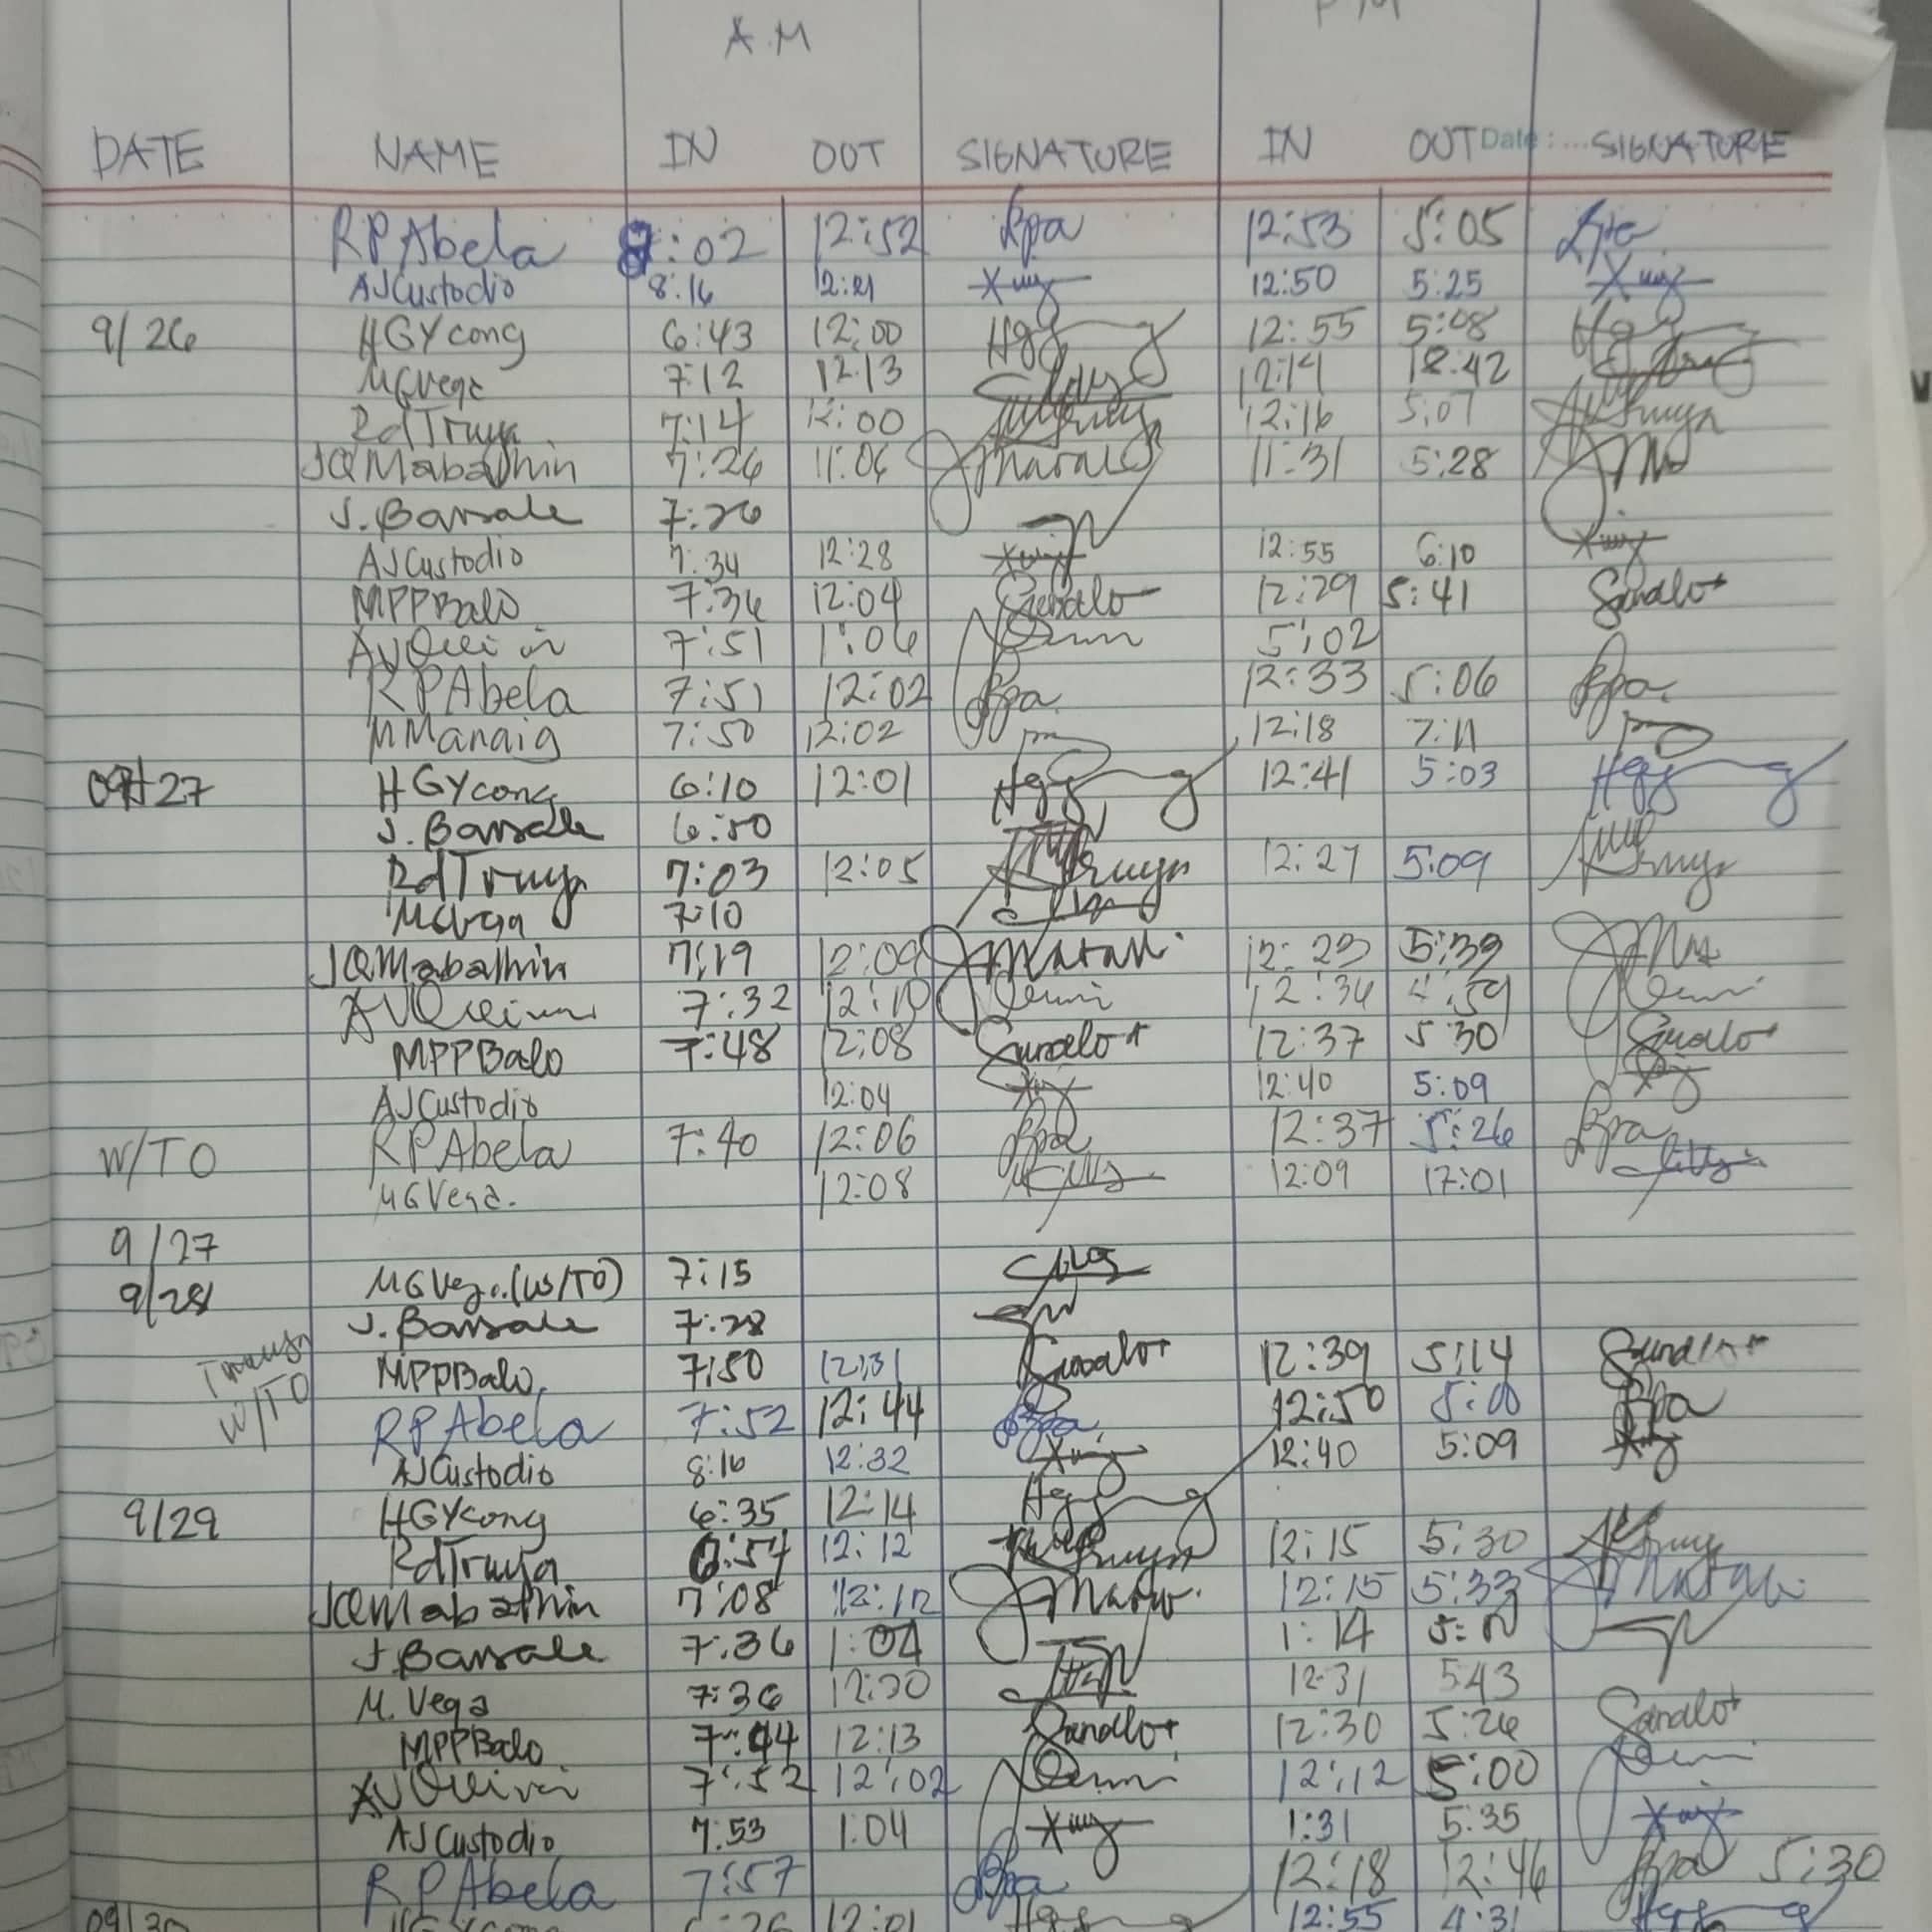 A.M PM
DATE NAME IN OUT SIGNATURE IN OUT Date: ... SIGNATURE
RPAbela 8:02 12:52 Rpa 12:53 5:05
AJCustodio 8:16 12:21 12:50 5:25
9/26 HGYcong 6:43 12:00 12:55 5:08
MGVega 7:12 12:13 12:14 18:42
RdTruya 7:14 12:00 12:16 5:07
JQMabathin 7:26 11:06 11:31 5:28
J. Barsale 7:26
AJCustodio 7:34 12:28 12:55 6:10
MPPBalo 7:36 12:04 12:29 5:41
7:51 1:06 5:02
RPAbela 7:51 12:02 Rpa 12:33 5:06 Rpa
MManaig 7:50 12:02 12:18 7:11
09/27 HGYcong 6:10 12:01 12:41 5:03
J. Barsale 6:50
RdTruya 7:03 12:05 12:27 5:09
MGVega 7:10
JQMabathin 7:19 12:09 12:23 5:39
7:32 12:10 12:34 4:59
MPPBalo 7:48 12:08 12:37 5:30
AJCustodio 12:04 12:40 5:09
W/TO RPAbela 7:40 12:06 Rpa 12:37 5:26 Rpa
MGVega. 12:08 12:09 17:01
9/27
9/28 MGVega (W/TO) 7:15
J. Barsale 7:28
MPPBalo 7:50 12:31 12:39 5:14
W/TO RPAbela 7:52 12:44 Rpa 12:50 5:00 Rpa
AJCustodio 8:16 12:32 12:40 5:09
9/29 HGYcong 6:35 12:14
RdTruya 6:54 12:12 12:15 5:30
JQMabathin 7:08 12:12 12:15 5:33
J Barsale 7:36 1:04 1:14
M. Vega 7:36 12:30 12:31 5:43
MPPBalo 7:44 12:13 12:30 5:26
7:52 12:02 12:12 5:00
AJCustodio 7:53 1:04 1:31 5:35
RPAbela 7:57 Rpa 12:18 12:46 Rpa 5:30
09/30 HGYcong 6:26 12:01 12:55 4:31